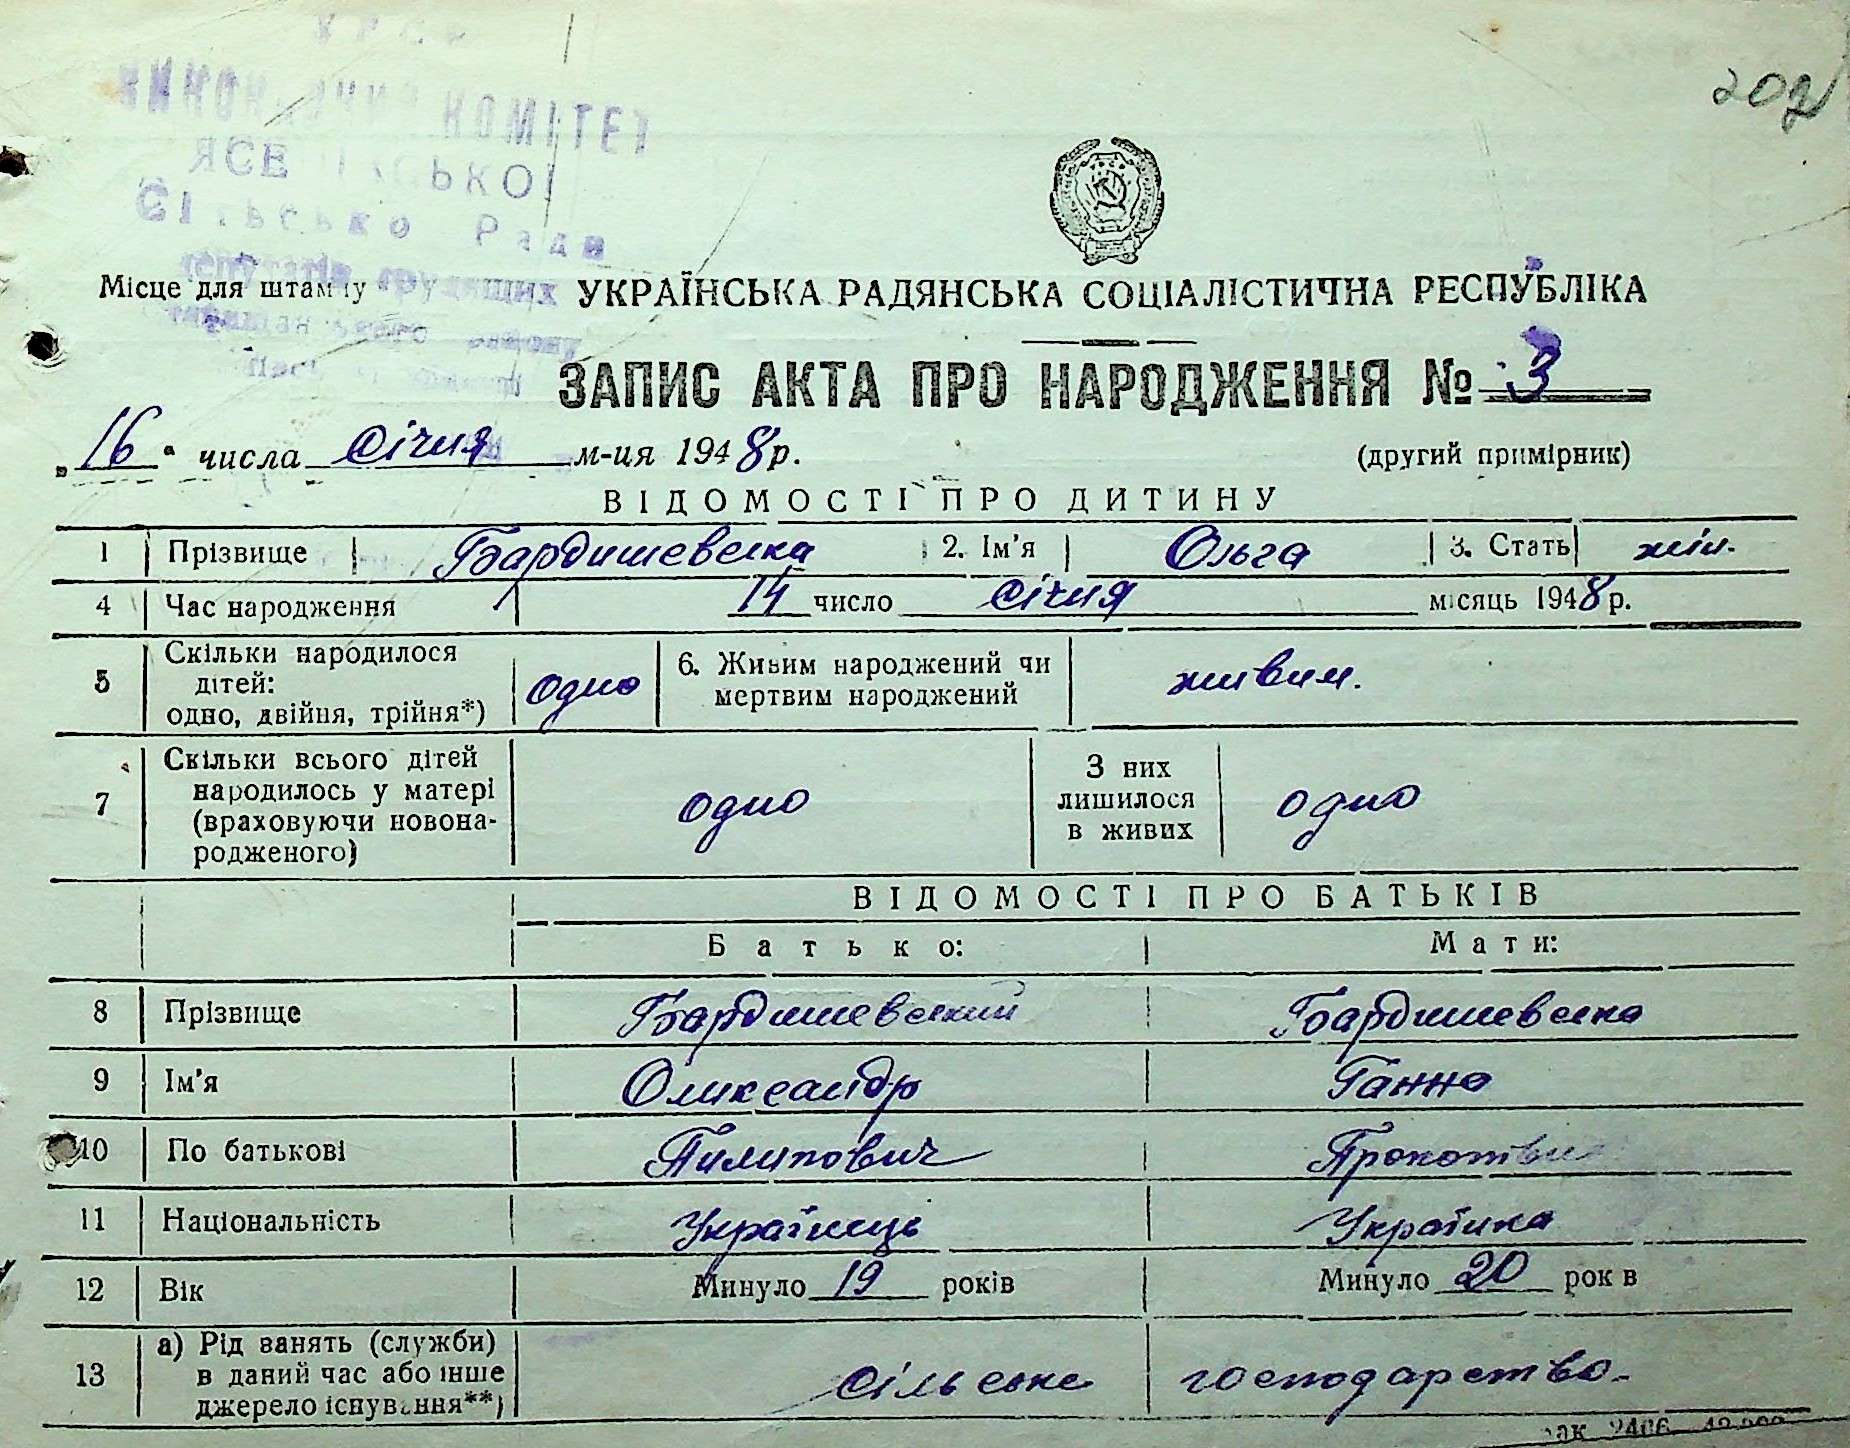 КОМІТЕТ
Місце для штампу
трудящих
УКРАЇНСЬКА РАДЯНСЬКА СОЦІАЛІСТИЧНА РЕСПУБЛІКА
ЗАПИС АКТА ПРО НАРОДЖЕННЯ № 3
„16“ числа січня м-ця 1948 р.
(другий примірник)
ВІДОМОСТІ ПРО ДИТИНУ
1 Прізвище Бардишевська 2. Ім'я Ольга 3. Стать жін.
4 Час народження 14 число січня місяць 1948 р.
5 Скільки народилося дітей: одно, двійня, трійня*) одно 6. Живим народжений чи мертвим народжений живим.
7 Скільки всього дітей народилось у матері (враховуючи новона-родженого) одно З них лишилося в живих одно
ВІДОМОСТІ ПРО БАТЬКІВ
Батько: Мати:
8 Прізвище Бардишевський Бардишевська
9 Ім'я Олександр Ганна
10 По батькові Пилипович
11 Національність Українець Українка
12 Вік Минуло 19 років Минуло 20 років
13 а) Рід занять (служби) в даний час або інше джерело існування**) сільське господарство.